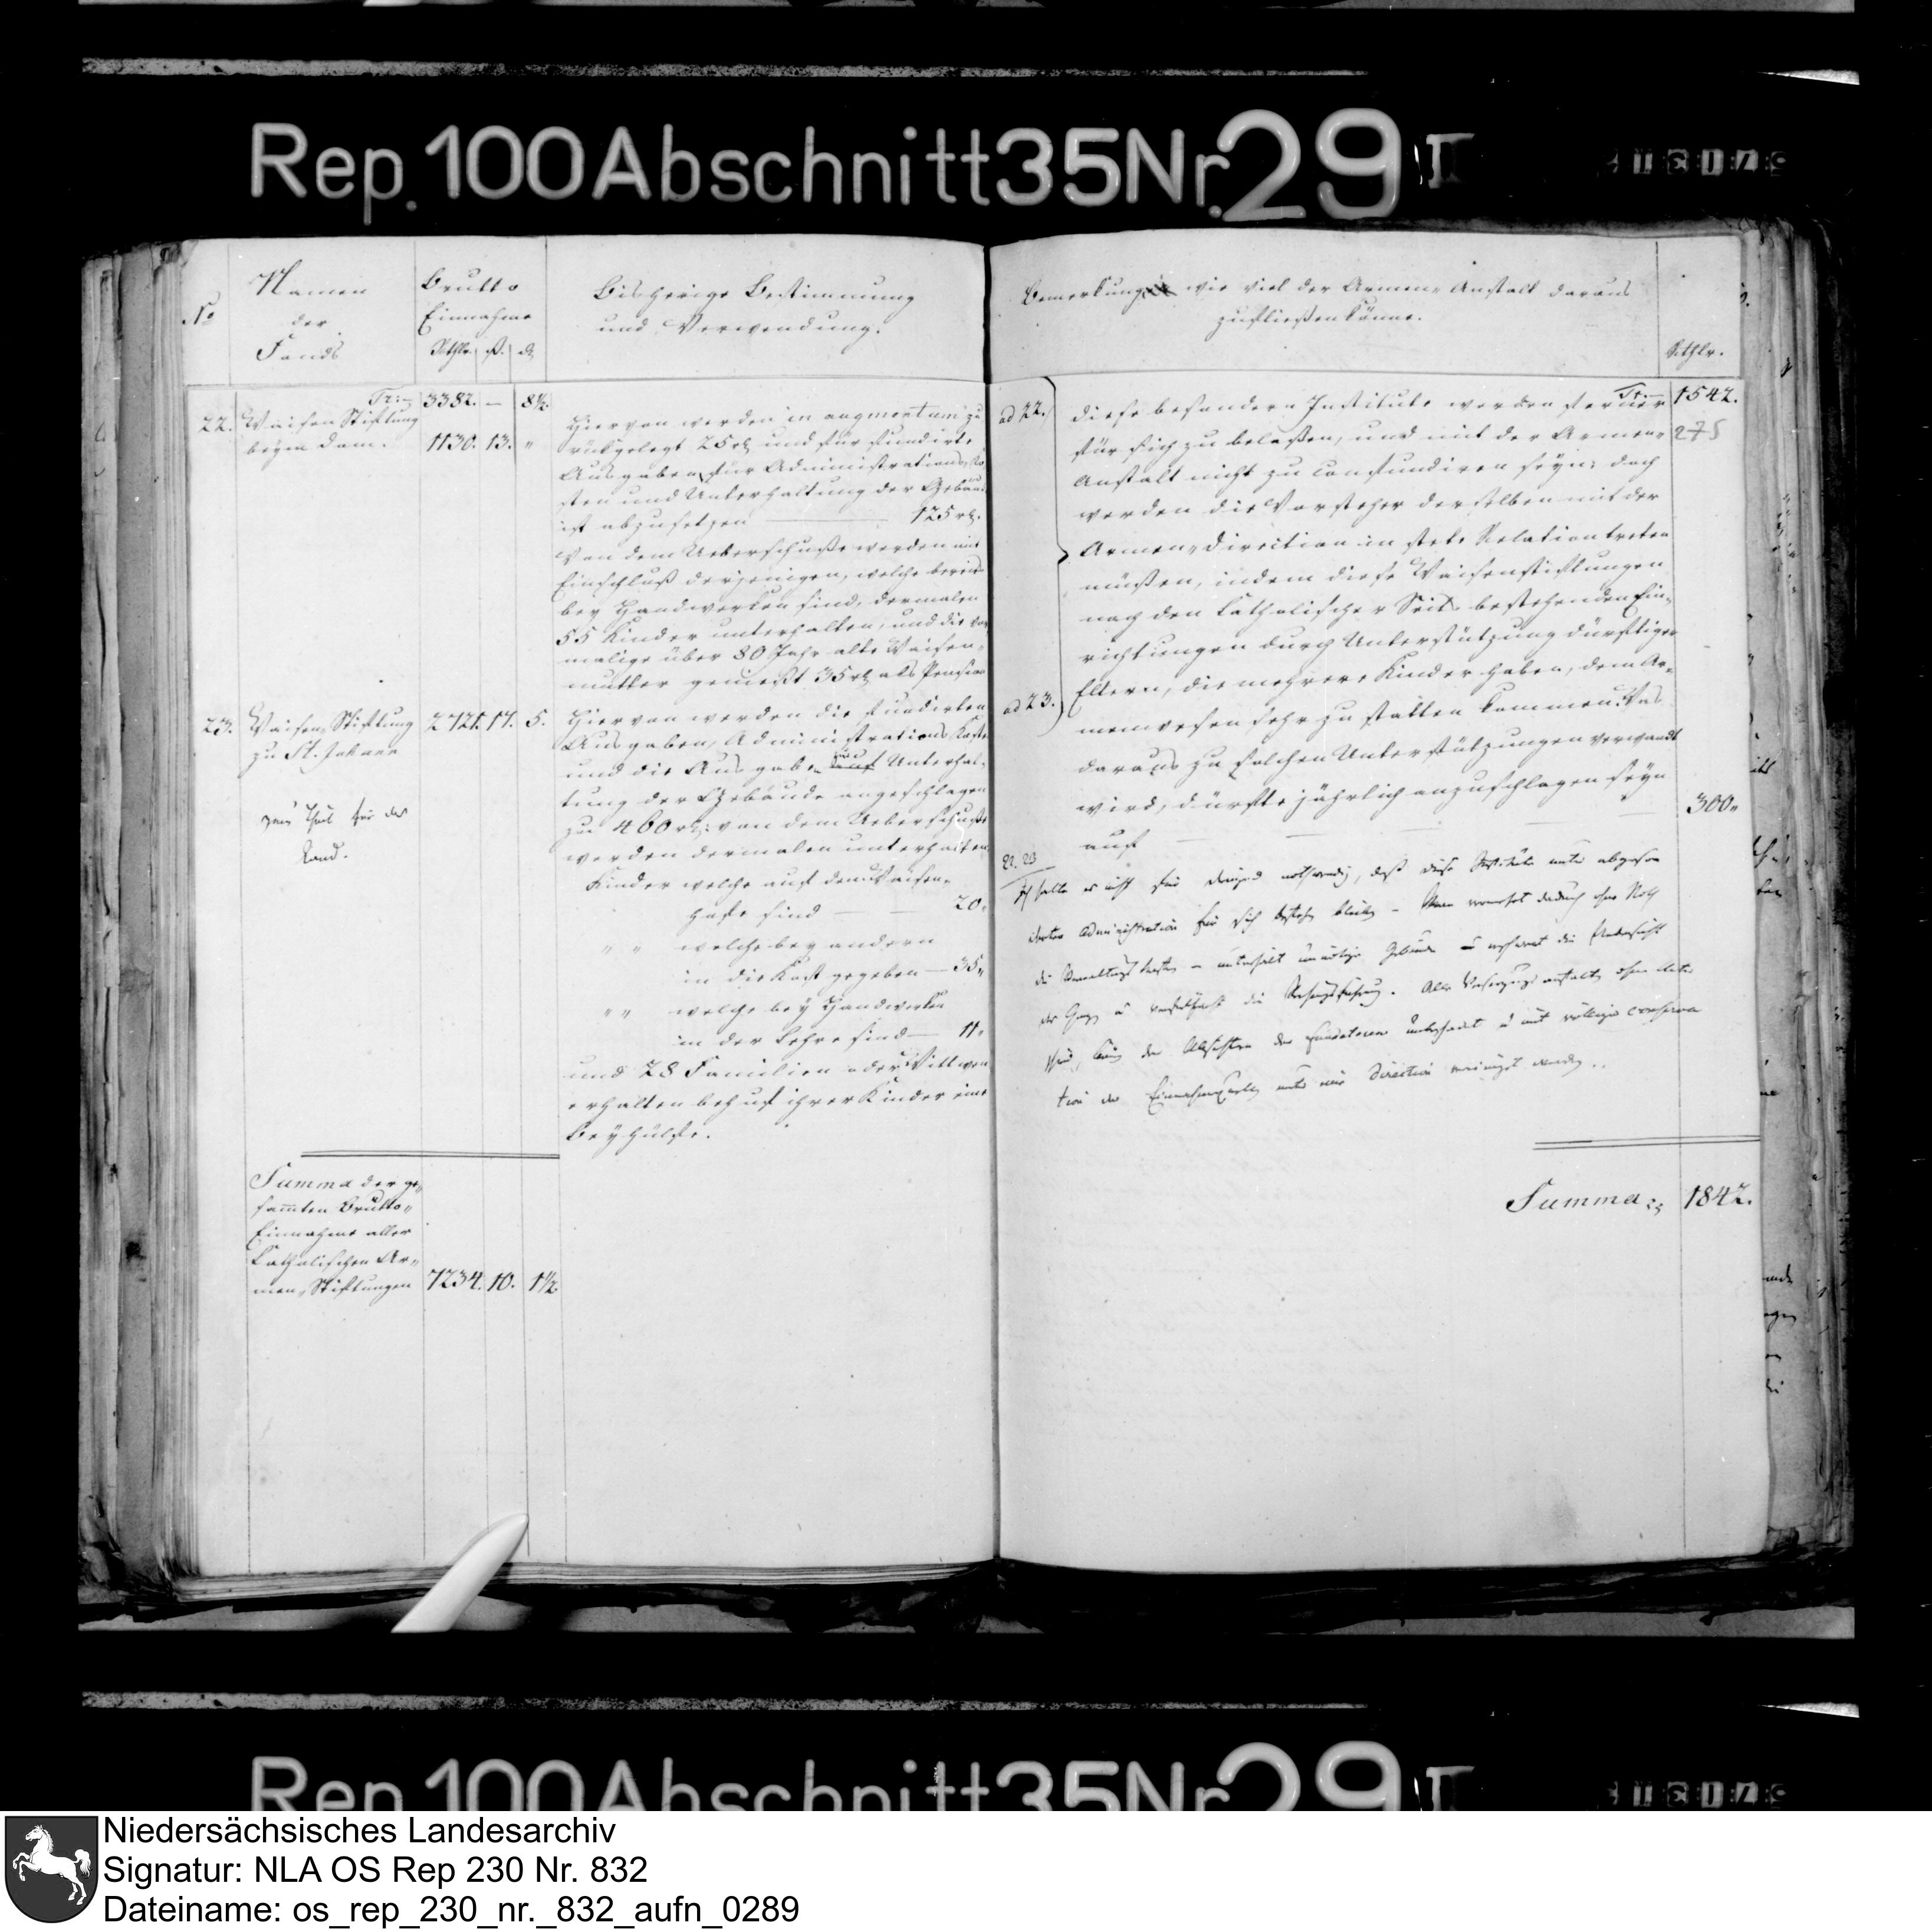 Rep. 100 Abschnitt 35 Nr. 29 I
No
Namen
der
Fonds
Brutto
Einnahme
Rthlr. ß. d
Bisherige Bestimmung
und Verwendung.
Tr:
3382. — 8½.
22. Waisen Stiftung
beym Dom.
1130. 13. "
Hiervon werden in augmentum zu-
rükgelegt 25 rt, und für fundirte
Ausgaben, für Administrations Ko-
sten und Unterhaltung der Gebäude
ist abzusetzen — 125 rt.
Von dem Ueberschuße werden mit
Einschluß derjenigen, welche bereits
bey Handwerkern sind, dermalen
55 Kinder unterhalten, und die vor-
malige über 80 Jahr alte Waisen-
mutter genießt 35 rt als Pension
23. Waisen Stiftung
zu St. Johann
2721. 17. 5.
Theil für das
Land.
Hiervon werden die fundirten
Ausgaben, Administrations Kosten
und die Ausgaben auf Unterhal-
tung der Gebäude angeschlagen
zu 460 rt: von dem Ueberschuße
werden dermalen unterhalten
Kinder welche auf dem Waisen-
hofe sind — — 20.
" " welche bey andern
in die Kost gegeben — 35 "
" " welche bey Handwerkern
in der Lehre sind — 11 "
und 28 Familien oder Wittwen
erhalten behuf ihrer Kinder eine
Beyhülfe.
Summa der ge-
sammten Brutto-
Einnahme aller
Catholischen Ar-
men Stiftungen 7234. 10. 1½.
Bemerkung wie viel der Armen-Anstalt daraus
zufließen könne.
Rthlr.
Tr:
1542.
275
ad 22.
diese besondern Institute werden ferner
für sich zu belaßen, und mit der Armen-
Anstalt nicht zu confundiren seyn; doch
werden die Vorsteher derselben mit der
Armen-Direction in stete Relation treten
müßen, indem diese Waisenstiftungen
nach den katholischer Seits bestehenden Ein-
richtungen durch Unterstützung dürftiger
Eltern, die mehrere Kinder haben, dem Ar-
ad 23.
menwesen sehr zu statten kommen. Was
daraus zu solchen Unterstützungen verwandt
wird, dürfte jährlich anzuschlagen seyn
auf — — — — 300 "
22. 23
Ich halte es nicht für nothwendig, daß diese Institute unter abgeson
derter Administration für sich bestehen bleiben – Man vermehrt dadurch ohne Noth
die Verwaltungskosten – unterhält unnötige Gebäude u erschwert die Uebersicht
des Ganzen u die Rechnungsführung. Alle Versorgungsanstalten
können den Absichten der Fundatoren unbeschadet u mit völliger conserva
tion der unter eine Direction vereinigt werden.
Summa 1842.
Niedersächsisches Landesarchiv
Signatur: NLA OS Rep 230 Nr. 832
Dateiname: os_rep_230_nr._832_aufn_0289